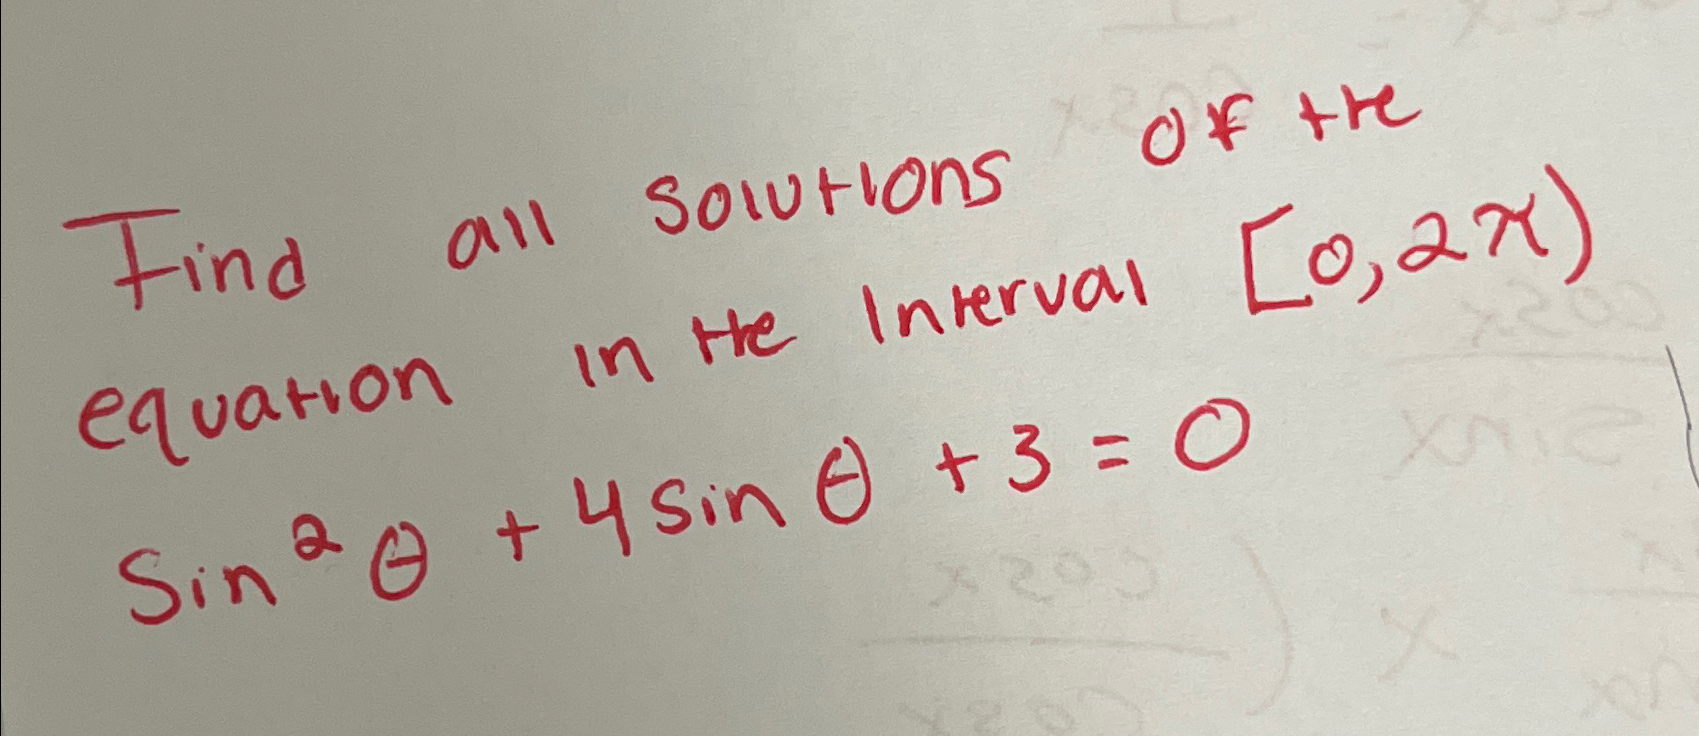 Find all solutions of the
equation in the Interval [0, 2π)
Sin² θ + 4 sin θ + 3 = 0